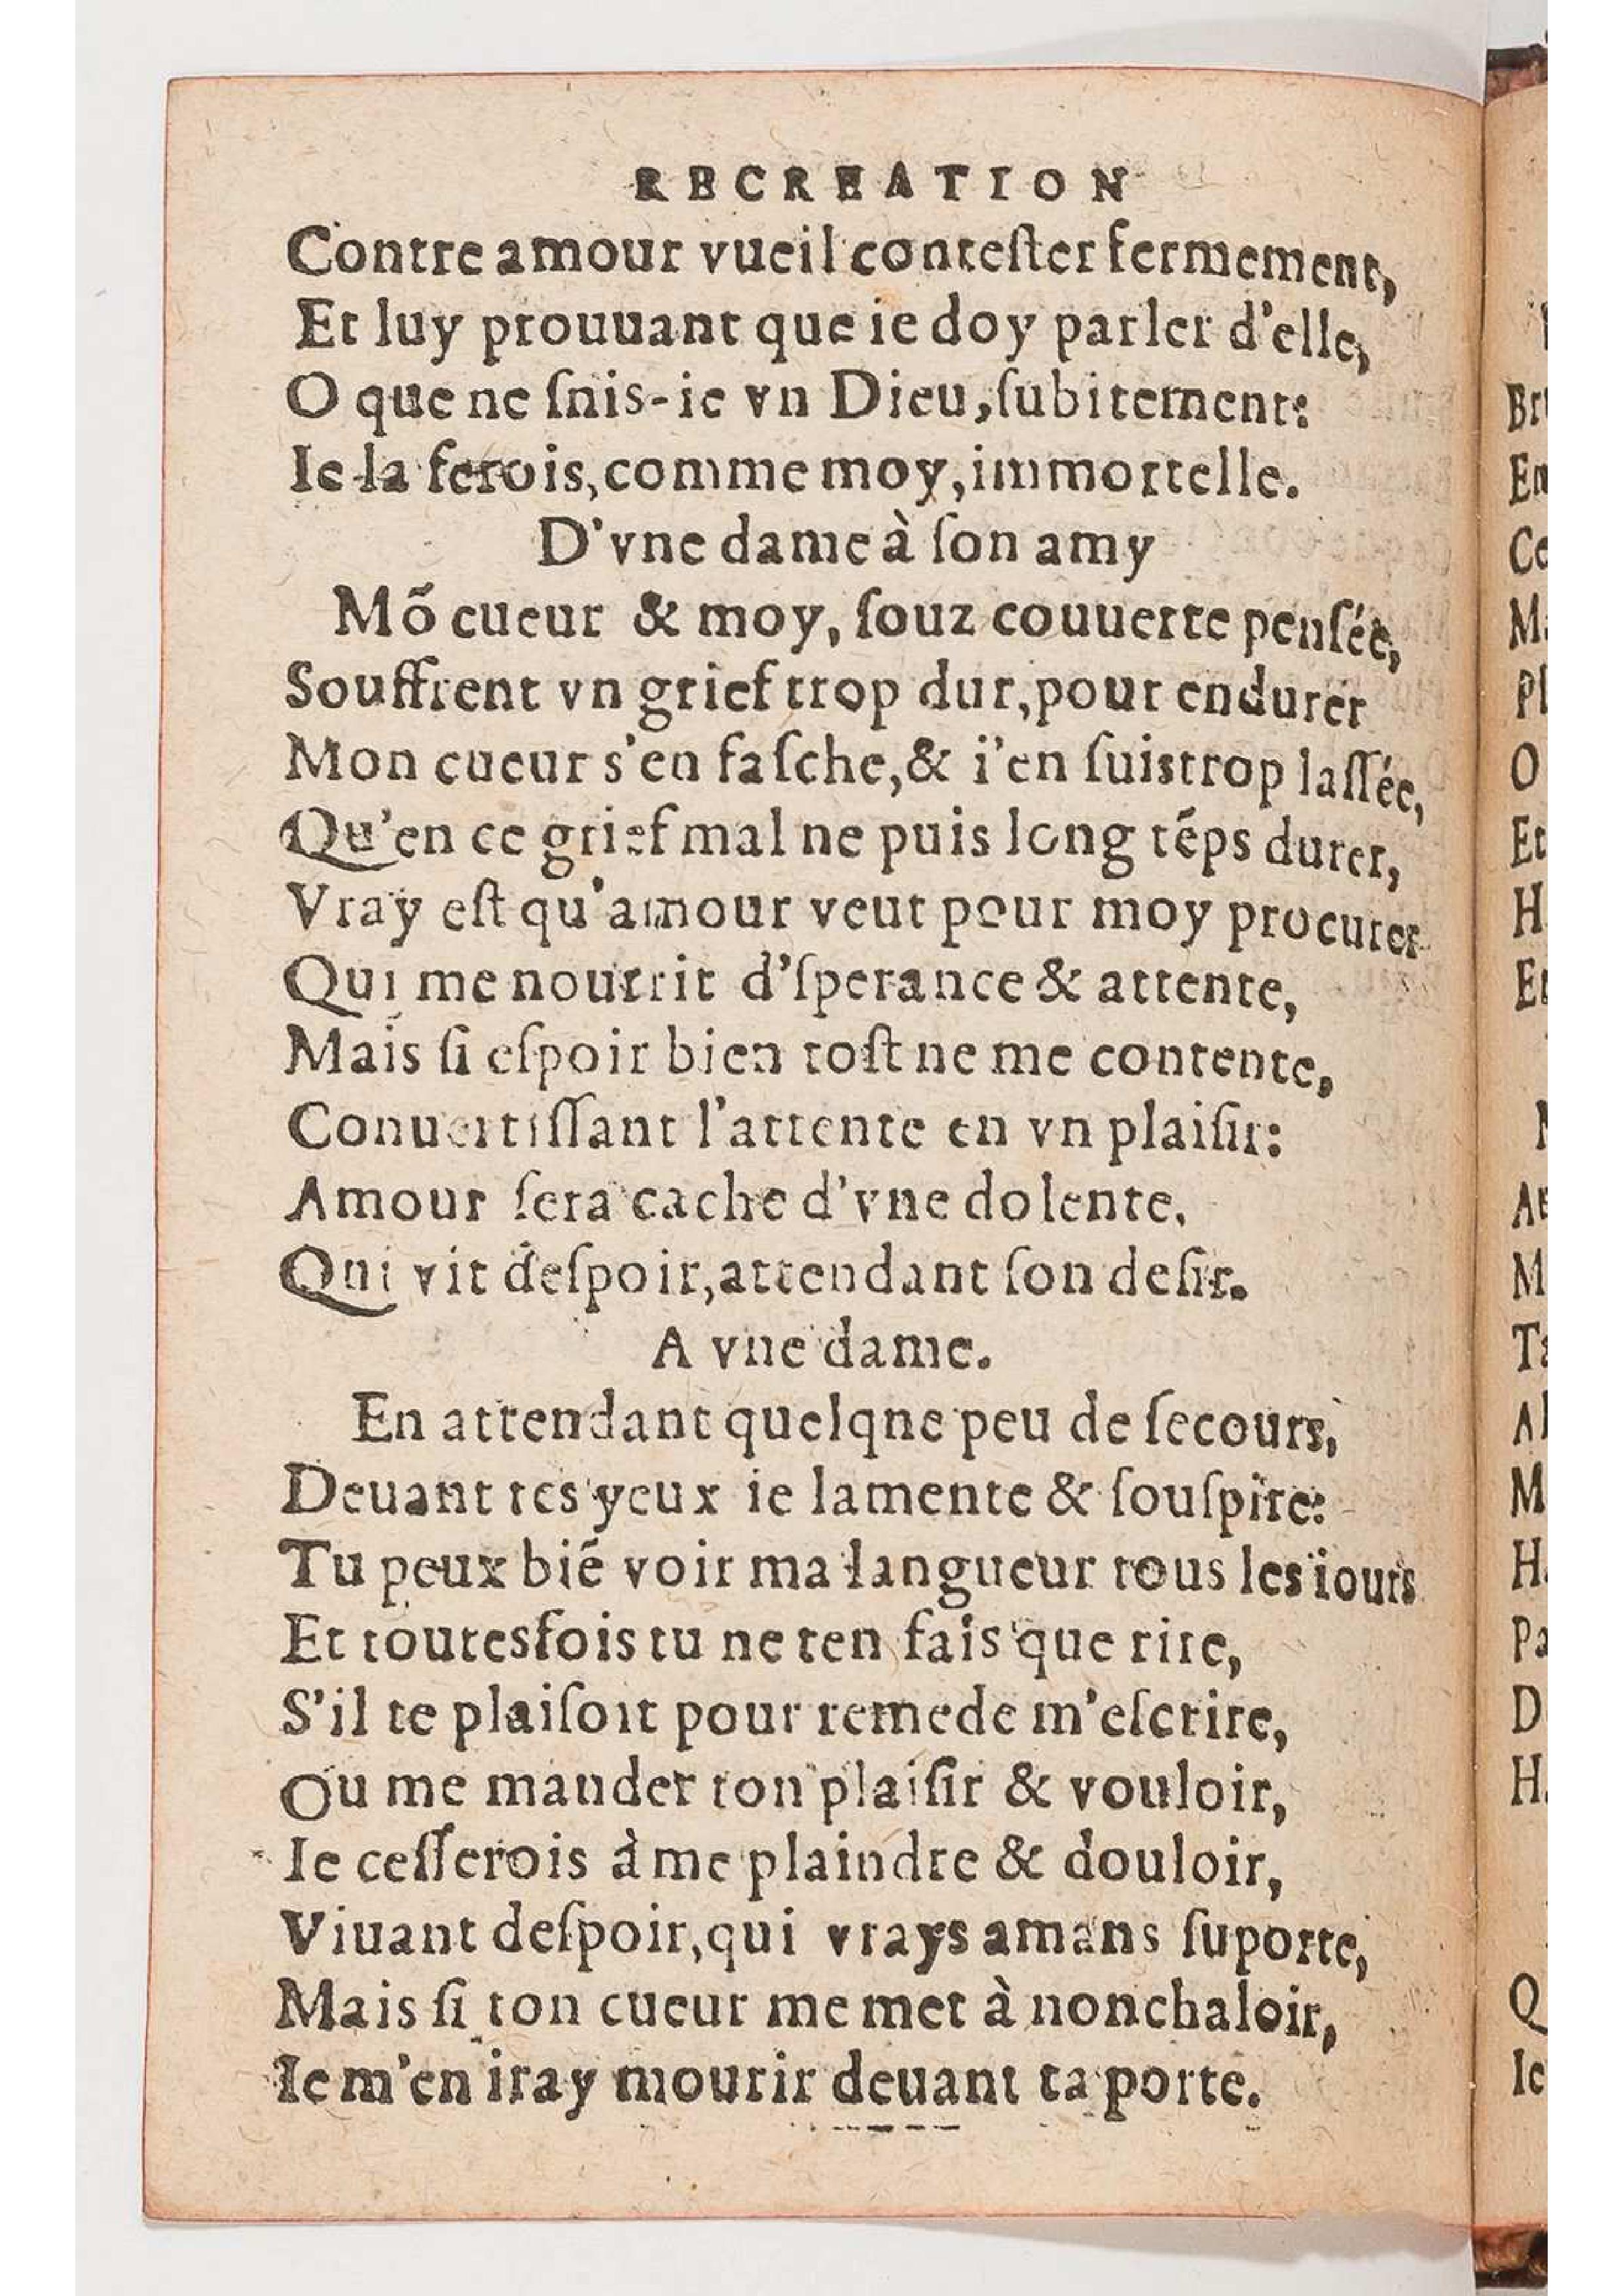 RECREATION
Contre amour vueil conteſter fermement,
Et luy prouuant que ie doy parler d'elle,
O que ne ſnis-ie vn Dieu, ſubitement:
Ie la ferois, comme moy, immortelle.
D'vne dame à ſon amy
Mõ cueur & moy, ſouz couuerte penſée,
Souffrent vn grief trop dur, pour endurer
Mon cueur s'en faſche, & i'en ſuis trop laſſée,
Qu'en ce grief mal ne puis long tẽps durer,
Vray eſt qu'amour veut pour moy procurer
Qui me nourrit d'ſperance & attente,
Mais ſi eſpoir bien toſt ne me contente,
Conuertiſſant l'attente en vn plaiſir:
Amour ſera cache d'vne dolente,
Qui vit deſpoir, attendant ſon deſir.
A vne dame.
En attendant quelqne peu de ſecours,
Deuant tes yeux ie lamente & ſouſpire:
Tu peux biẽ voir ma langueur tous les iours
Et toutesfois tu ne ten fais que rire,
S'il te plaiſoit pour remede m'eſcrire,
Ou me mander ton plaiſir & vouloir,
Ie ceſſerois à me plaindre & douloir,
Viuant deſpoir, qui vrays amans ſuporte,
Mais ſi ton cueur me met à nonchaloir,
Ie m'en iray mourir deuant ta porte.
Et
Ie